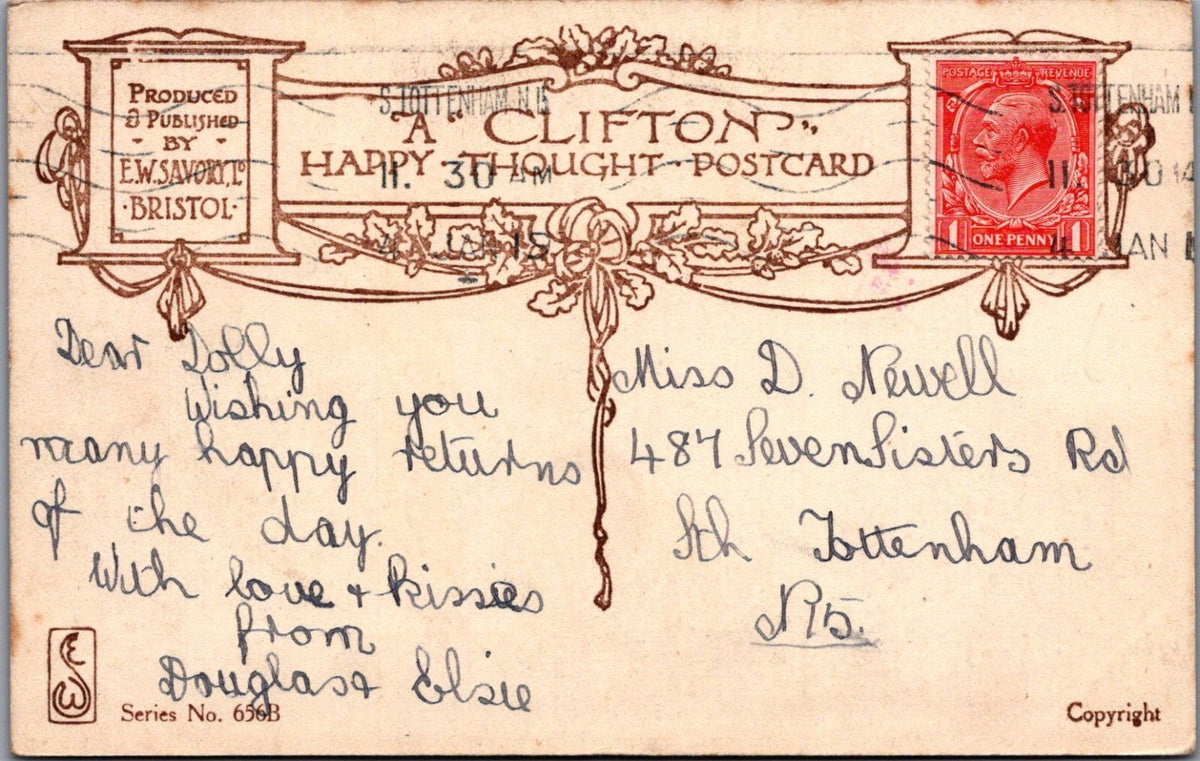 PRODUCED
& PUBLISHED
· BY ·
E.W. SAVORY, LD
· BRISTOL ·
A "CLIFTON"
HAPPY · THOUGHT · POSTCARD
S. TOTTENHAM. N. 15
11. 30 AM
4 JAN 18
POSTAGE REVENUE
1 ONE PENNY 1
S. TOTTENHAM
11. 30
4 JAN
Dear Dolly
Wishing you
many happy returns
of the day.
With love + kissies
from
Douglas + Elsie
Miss D. Newell
487 Seven Sisters Rd
Sth Tottenham
N15.
Series No. 656B
Copyright